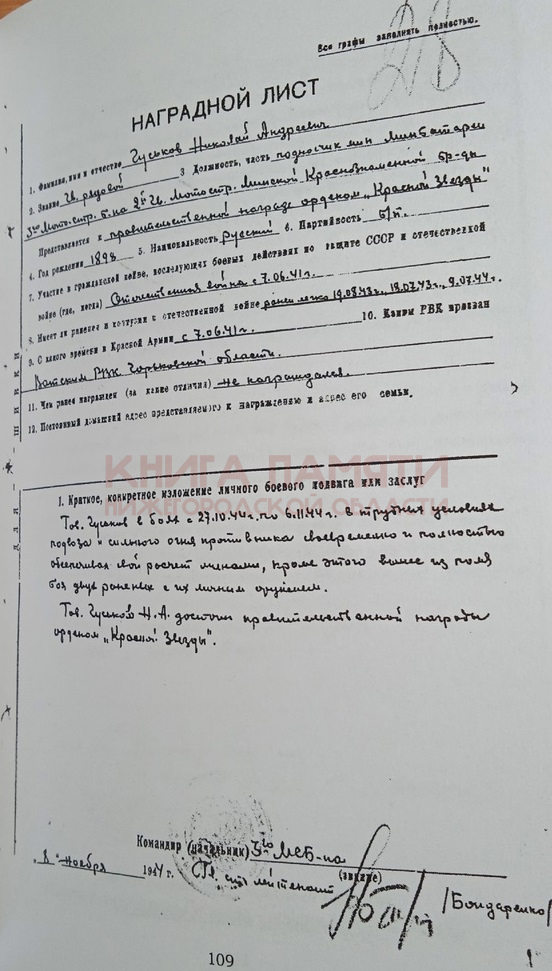 Все графы заполнять полностью.
218
НАГРАДНОЙ ЛИСТ
1. Фамилия, имя и отчество Гуськов Николай Андреевич
2. Звание Гв. рядовой 3 Должность, часть подносчик мин минбатареи
3го Мото-стр. б-на 2й Гв. Мотостр. Минской Краснознаменной бр-ды
Представляется к правительственной награде орденом „Красной Звезды"
4. Год рождения 1898 5. Национальность русский 6. Партийность б/п.
7. Участие в гражданской войне, последующих боевых действиях по защите СССР и отечественной
войне (где, когда) Отечественная война с 7.06.41г.
8. Имеет ли ранения и контузии в отечественной войне ранен легко 19.08.43г., 18.07.43г., 9.07.44г.
9. С какого времени в Красной Армии с 7.06.41г. 10. Каким РВК призван
Вачским РВК Горьковской области.
11. Чем ранее награжден (за какие отличия) не награждался.
12. Постоянный домашний адрес представляемого к награждению и адрес его семьи.
КНИГА ПАМЯТИ
НИЖЕГОРОДСКОЙ ОБЛАСТИ
1. Краткое, конкретное изложение личного боевого подвига или заслуг
Тов. Гуськов в боях с 27.10.44г. по 6.11.44г. в трудных условиях
подвоза и сильного огня противника своевременно и полностью
обеспечивал свой расчет минами, кроме этого вынес из поля
боя двух раненых с их личным оружием.
Тов. Гуськов Н.А. достоин правительственной награды
орденом „Красной Звезды".
Командир (начальник) 3го МСБ-на
(звание)
8" ноября 1944 г. Гв. ст. лейтенант /Бондаренко/
109